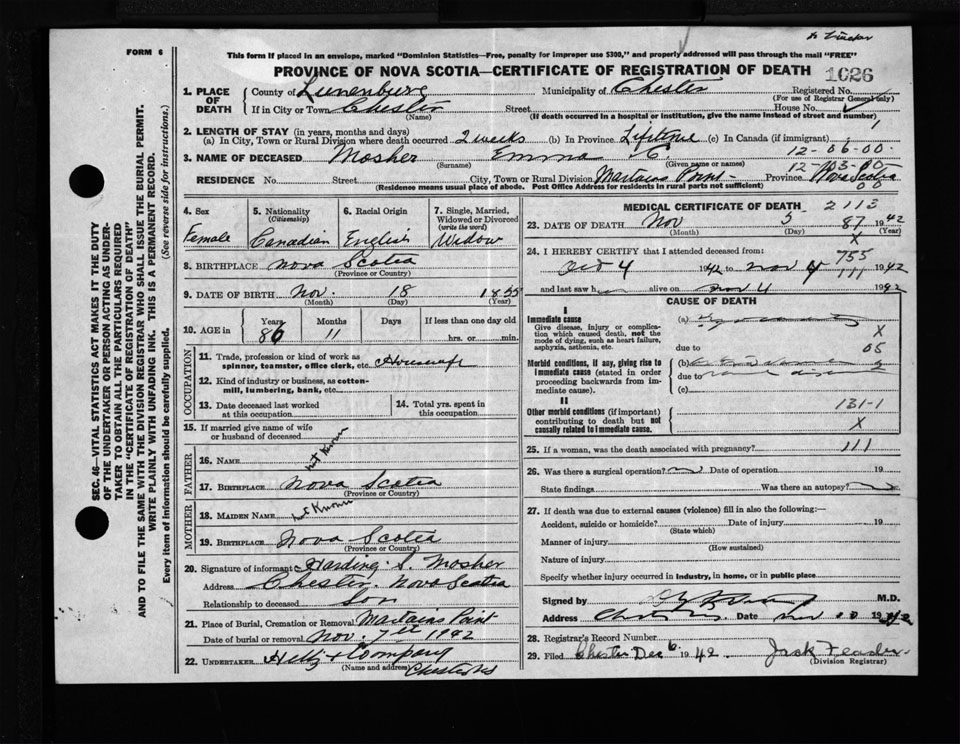 FORM 6
This form if placed in an envelope, marked "Dominion Statistics—Free, penalty for improper use $300," and properly addressed will pass through the mail "FREE"
PROVINCE OF NOVA SCOTIA—CERTIFICATE OF REGISTRATION OF DEATH 1026
1. PLACE OF DEATH
County of Lunenburg Municipality of Chester Registered No.
(For use of Registrar General only)
If in City or Town Chester Street House No.
(Name) (If death occurred in a hospital or institution, give the name instead of street and number)
2. LENGTH OF STAY (in years, months and days)
(a) In City, Town or Rural Division where death occurred 2 weeks (b) In Province Lifetime (c) In Canada (if immigrant)
12-06-00
3. NAME OF DECEASED Mosher Emma C.
(Surname) (Given name or names)
RESIDENCE No. Street City, Town or Rural Division Martains Point Province Nova Scotia
(Residence means usual place of abode. Post Office Address for residents in rural parts not sufficient)
SEC. 46—VITAL STATISTICS ACT MAKES IT THE DUTY
OF THE UNDERTAKER OR PERSON ACTING AS UNDER-
TAKER TO OBTAIN ALL THE PARTICULARS REQUIRED
IN THE "CERTIFICATE OF REGISTRATION OF DEATH"
AND TO FILE THE SAME WITH THE DIVISION REGISTRAR WHO SHALL ISSUE THE BURIAL PERMIT.
WRITE PLAINLY WITH UNFADING INK. THIS IS A PERMANENT RECORD.
Every item of information should be carefully supplied. (See reverse side for instructions.)
4. Sex
Female
5. Nationality
(Citizenship)
Canadian
6. Racial Origin
English
7. Single, Married,
Widowed or Divorced
(write the word)
Widow
8. BIRTHPLACE Nova Scotia
(Province or Country)
9. DATE OF BIRTH Nov. 18 1855
(Month) (Day) (Year)
10. AGE in Years Months Days If less than one day old
86 11 hrs. or min.
OCCUPATION
11. Trade, profession or kind of work as
spinner, teamster, office clerk, etc.
12. Kind of industry or business, as cotton-
mill, lumbering, bank, etc.
13. Date deceased last worked
at this occupation
14. Total yrs. spent in
this occupation
15. If married give name of wife
or husband of deceased
FATHER
16. NAME not Known
17. BIRTHPLACE Nova Scotia
(Province or Country)
MOTHER
18. MAIDEN NAME not Known
19. BIRTHPLACE Nova Scotia
(Province or Country)
20. Signature of informant Harding S. Mosher
Address Chester Nova Scotia
Relationship to deceased Son
21. Place of Burial, Cremation or Removal Martains Point
Date of burial or removal Nov. 7th 1942
22. UNDERTAKER & Company
(Name and address) Chester NS
MEDICAL CERTIFICATE OF DEATH 2113
23. DATE OF DEATH Nov 5 87 1942
(Month) (Day) (Year)
X
24. I HEREBY CERTIFY that I attended deceased from:
755
Oct 4 1942 to Nov 4 111 1942
and last saw h alive on Nov 4 1942
CAUSE OF DEATH
I
Immediate cause (a)
Give disease, injury or complica-
tion which caused death, not the
mode of dying, such as heart failure,
asphyxia, asthenia, etc.
X
due to 05
Morbid conditions, if any, giving rise to
immediate cause (stated in order
proceeding backwards from im-
mediate cause).
(b)
due to
(c)
II
Other morbid conditions (if important)
contributing to death but not
causally related to immediate cause.
131-1
X
25. If a woman, was the death associated with pregnancy? 111
26. Was there a surgical operation? Date of operation 19
State findings Was there an autopsy?
27. If death was due to external causes (violence) fill in also the following:—
Accident, suicide or homicide? Date of injury 19
(State which)
Manner of injury
(How sustained)
Nature of injury
Specify whether injury occurred in industry, in home, or in public place
Signed by M.D.
Address Date 19
28. Registrar's Record Number
29. Filed Chester Dec 6 1942. Jack
(Division Registrar)